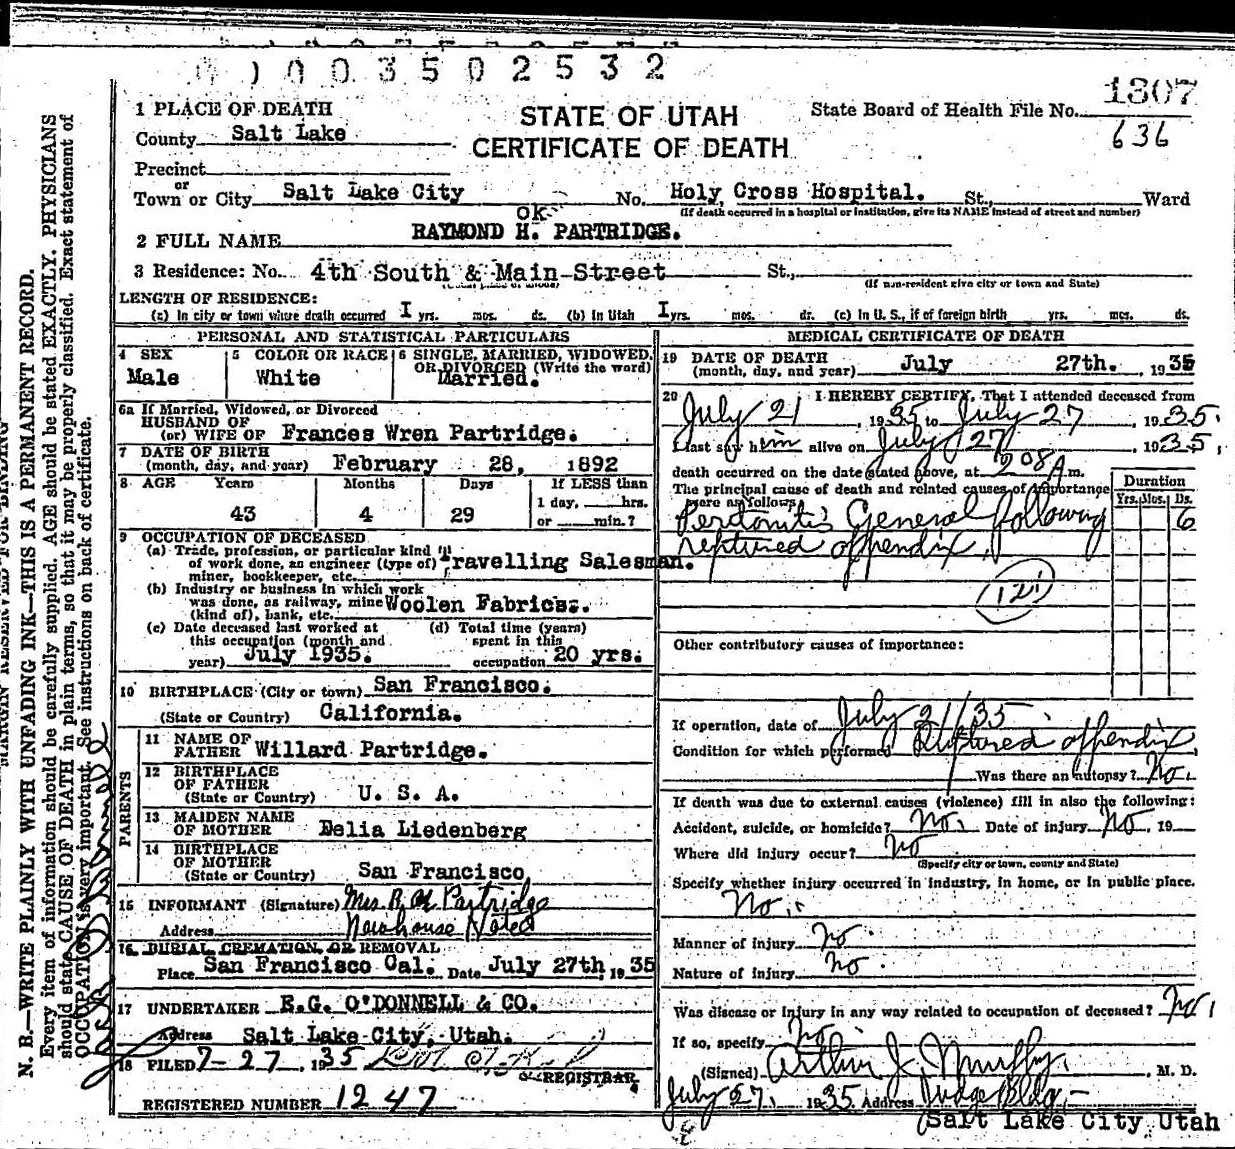 0003502532
1 PLACE OF DEATH
STATE OF UTAH
State Board of Health File No. 1307
County Salt Lake
CERTIFICATE OF DEATH
636
Precinct
or
Town or City Salt Lake City No. Holy Cross Hospital. St., Ward
(If death occurred in a hospital or institution, give its NAME instead of street and number)
OK
2 FULL NAME RAYMOND H. PARTRIDGE.
3 Residence: No. 4th South & Main Street St.,
(Usual place of abode) (If non-resident give city or town and State)
LENGTH OF RESIDENCE:
(a) In city or town where death occurred I yrs. mos. ds. (b) In Utah I yrs. mos. ds. (c) In U. S., if of foreign birth yrs. mos. ds.
PERSONAL AND STATISTICAL PARTICULARS
4 SEX Male
5 COLOR OR RACE White
6 SINGLE, MARRIED, WIDOWED, OR DIVORCED (Write the word) Married.
6a If Married, Widowed, or Divorced
HUSBAND OF
(or) WIFE OF Frances Wren Partridge.
7 DATE OF BIRTH
(month, day, and year) February 28, 1892
8 AGE Years Months Days If LESS than
1 day, hrs.
43 4 29 or min.?
9 OCCUPATION OF DECEASED
(a) Trade, profession, or particular kind
of work done, as engineer (type of) Travelling Salesman.
miner, bookkeeper, etc.
(b) Industry or business in which work
was done, as railway, mine Woolen Fabrics.
(kind of), bank, etc.
(c) Date deceased last worked at
this occupation (month and
year) July 1935.
(d) Total time (years)
spent in this
occupation 20 yrs.
10 BIRTHPLACE (City or town) San Francisco.
(State or Country) California.
PARENTS
11 NAME OF
FATHER Willard Partridge.
12 BIRTHPLACE
OF FATHER
(State or Country) U. S. A.
13 MAIDEN NAME
OF MOTHER Delia Liedenberg
14 BIRTHPLACE
OF MOTHER
(State or Country) San Francisco
15 INFORMANT (Signature) Mrs. R H Partridge
Address Newhouse Hotel
16. BURIAL, CREMATION, OR REMOVAL
Place San Francisco Cal. Date July 27th 1935
17 UNDERTAKER E.G. O'DONNELL & CO.
Address Salt Lake City, Utah.
18 FILED 7-27, 1935
REGISTRAR
REGISTERED NUMBER 1247
MEDICAL CERTIFICATE OF DEATH
19 DATE OF DEATH
(month, day, and year) July 27th. , 1935
20 I HEREBY CERTIFY, That I attended deceased from
July 21, 1935 to July 27, 1935.
I last saw him alive on July 27, 1935,
death occurred on the date stated above, at 208 A m.
The principal cause of death and related causes of importance
were as follows:
Duration
Yrs. Mos. Ds.
Peritonitis General following 6
ruptured appendix,
(121)
Other contributory causes of importance:
If operation, date of July 21/35
Condition for which performed Ruptured appendix
Was there an autopsy? No.
If death was due to external causes (violence) fill in also the following:
Accident, suicide, or homicide? No. Date of injury No, 19
Where did injury occur? No
(Specify city or town, county and State)
Specify whether injury occurred in industry, in home, or in public place.
No.
Manner of injury No.
Nature of injury No.
Was disease or injury in any way related to occupation of deceased? No.
If so, specify No
(Signed) Arthur J. Murphy, M. D.
July 27, 1935 Address Judge Bldg.
Salt Lake City Utah
N. B.—WRITE PLAINLY WITH UNFADING INK—THIS IS A PERMANENT RECORD.
Every item of information should be carefully supplied. AGE should be stated EXACTLY. PHYSICIANS
should state CAUSE OF DEATH in plain terms, so that it may be properly classified. Exact statement of
OCCUPATION is very important. See instructions on back of certificate.